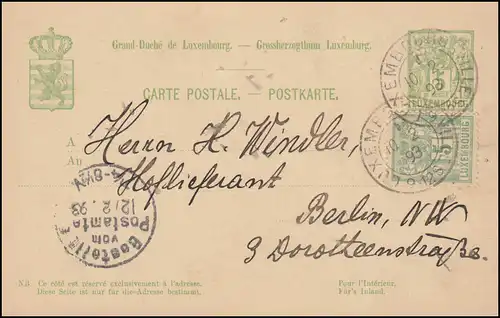 Grand-Duché de Luxembourg. — Grossherzogthum Luxemburg.
CARTE POSTALE. — POSTKARTE.
LUXEMBOURG-VILLE
10
93
5
LUXEMBOURG
5
LUXEMBOURG
A
An
Herrn H. Windler,
Hoflieferant
Berlin, NW
3 Dorotheenstraße.
Bestellt
vom
Postamte
12.2.93
N.B Ce côté est réservé exclusivement à l'adresse.
Diese Seite ist nur für die Adresse bestimmt.
Pour l'Intérieur.
Für's Inland.